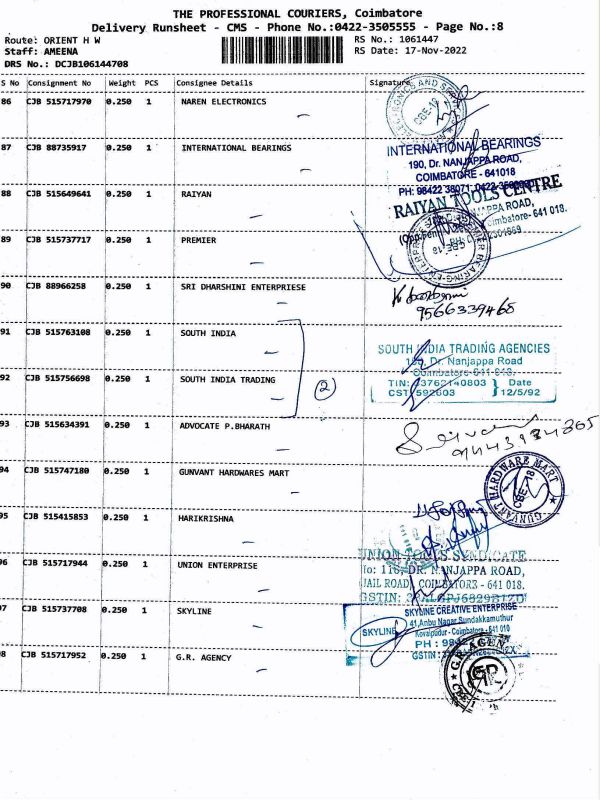 THE PROFESSIONAL COURIERS, Coimbatore
Delivery Runsheet - CMS - Phone No.:0422-3505555 - Page No.:8
Route: ORIENT H W
RS No.: 1061447
Staff: AMEENA
RS Date: 17-Nov-2022
DRS No.: DCJB106144708
S No Consignment No Weight PCS Consignee Details Signature
86 CJB 515717970 0.250 1 NAREN ELECTRONICS
CBE-12
87 CJB 88735917 0.250 1 INTERNATIONAL BEARINGS
INTERNATIONAL BEARINGS
190, Dr. NANJAPPA ROAD,
COIMBATORE - 641018
PH: 98422 38071,
88 CJB 515649641 0.250 1 RAIYAN
RAIYAN TOOLS CENTRE
NANJAPPA ROAD,
Coimbatore- 641 018.
89 CJB 515737717 0.250 1 PREMIER
CBE-18
90 CJB 88966258 0.250 1 SRI DHARSHINI ENTERPRIESE
9566339468
91 CJB 515763108 0.250 1 SOUTH INDIA
SOUTH INDIA TRADING AGENCIES
Dr. Nanjappa Road
Coimbatore-641 018.
92 CJB 515756698 0.250 1 SOUTH INDIA TRADING
2
TIN: 33762140803 Date
CST: 592603 12/5/92
93 CJB 515634391 0.250 1 ADVOCATE P.BHARATH
94 CJB 515747180 0.250 1 GUNVANT HARDWARES MART
GUNVANT HARDWARE MART
CBE-18
95 CJB 515415853 0.250 1 HARIKRISHNA
96 CJB 515717944 0.250 1 UNION ENTERPRISE
UNION TOOLS SYNDICATE
No: 116, DR. NANJAPPA ROAD,
JAIL ROAD, COIMBATORE - 641 018.
GSTIN:
97 CJB 515737708 0.250 1 SKYLINE
SKYLINE CREATIVE ENTERPRISE
SKYLINE
41, Anbu Nagar Sundakkamuthur
Kovaipudur - Coimbatore - 641 010
PH :
GSTIN :
98 CJB 515717952 0.250 1 G.R. AGENCY